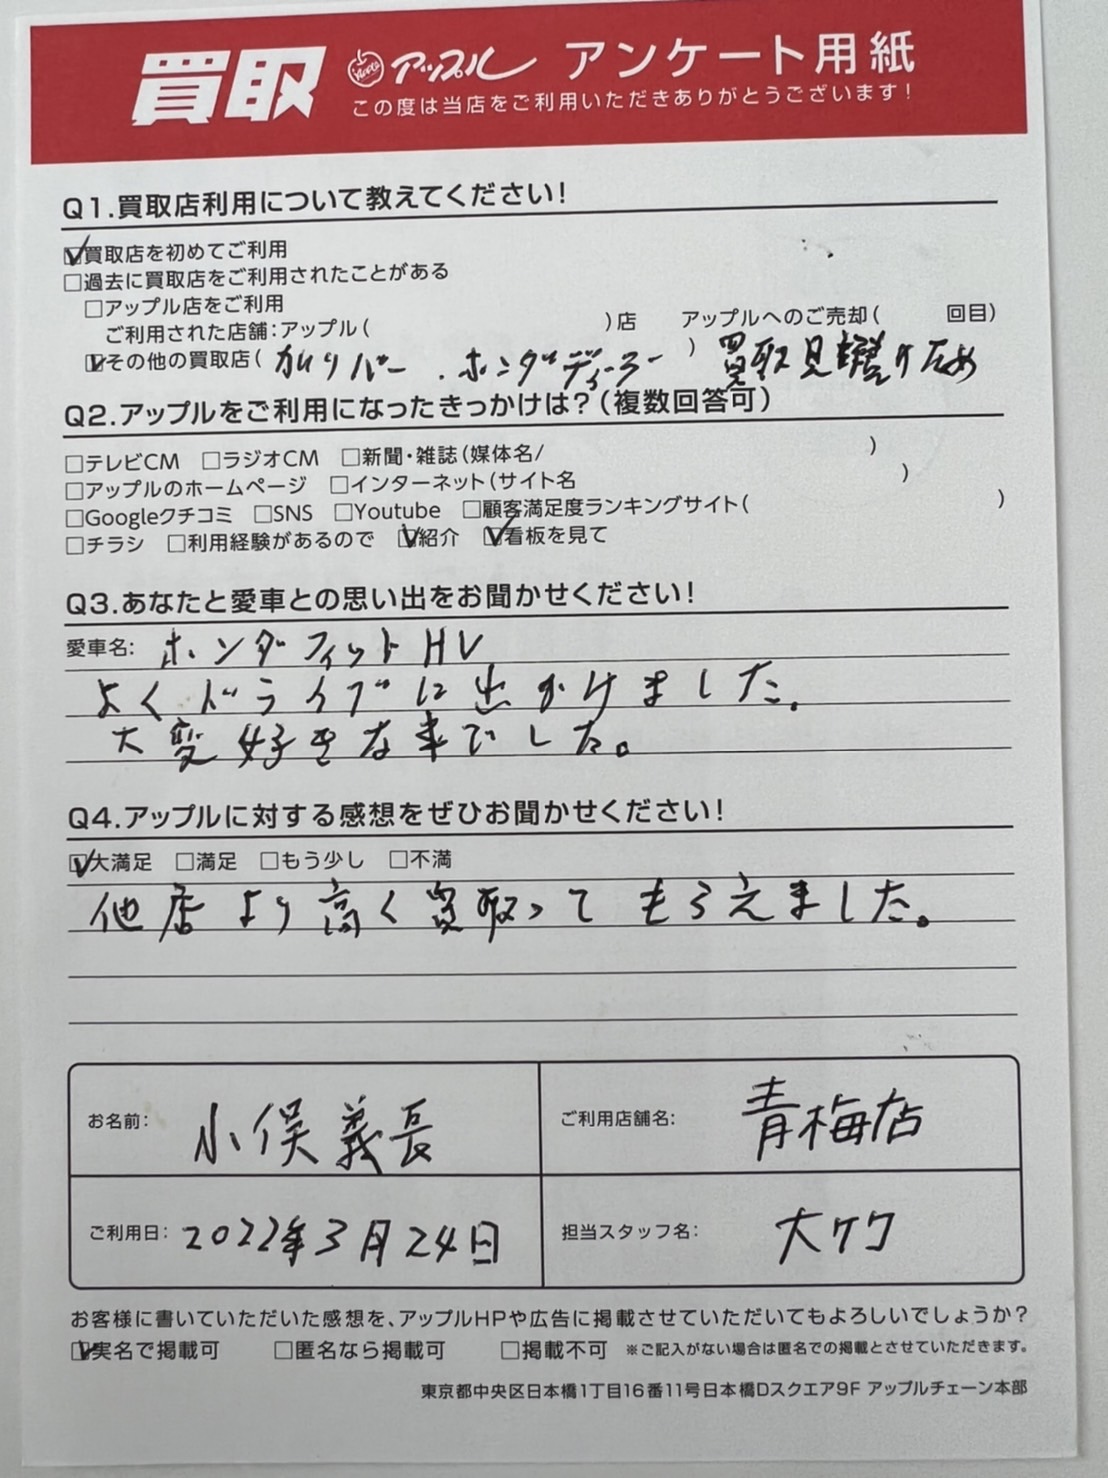 買取 アップル アンケート用紙
この度は当店をご利用いただきありがとうございます!
Q1.買取店利用について教えてください!
☑買取店を初めてご利用
□過去に買取店をご利用されたことがある
□アップル店をご利用
ご利用された店舗:アップル( )店 アップルへのご売却( 回目)
☑その他の買取店( ガリバー . ホンダディーラー ) 買取見積りため
Q2.アップルをご利用になったきっかけは?(複数回答可)
□テレビCM □ラジオCM □新聞・雑誌(媒体名/ )
□アップルのホームページ □インターネット(サイト名 )
□Googleクチコミ □SNS □Youtube □顧客満足度ランキングサイト( )
□チラシ □利用経験があるので ☑紹介 ☑看板を見て
Q3.あなたと愛車との思い出をお聞かせください!
愛車名: ホンダフィットHV
よくドライブに出かけました。
大変好きな車でした。
Q4.アップルに対する感想をぜひお聞かせください!
☑大満足 □満足 □もう少し □不満
他店より高く買取ってもらえました。
お名前: 小俣義長
ご利用店舗名: 青梅店
ご利用日: 2022年3月24日
担当スタッフ名: 大竹
お客様に書いていただいた感想を、アップルHPや広告に掲載させていただいてもよろしいでしょうか?
☑実名で掲載可 □匿名なら掲載可 □掲載不可 ※ご記入がない場合は匿名での掲載とさせていただきます。
東京都中央区日本橋1丁目16番11号日本橋Dスクエア9F アップルチェーン本部